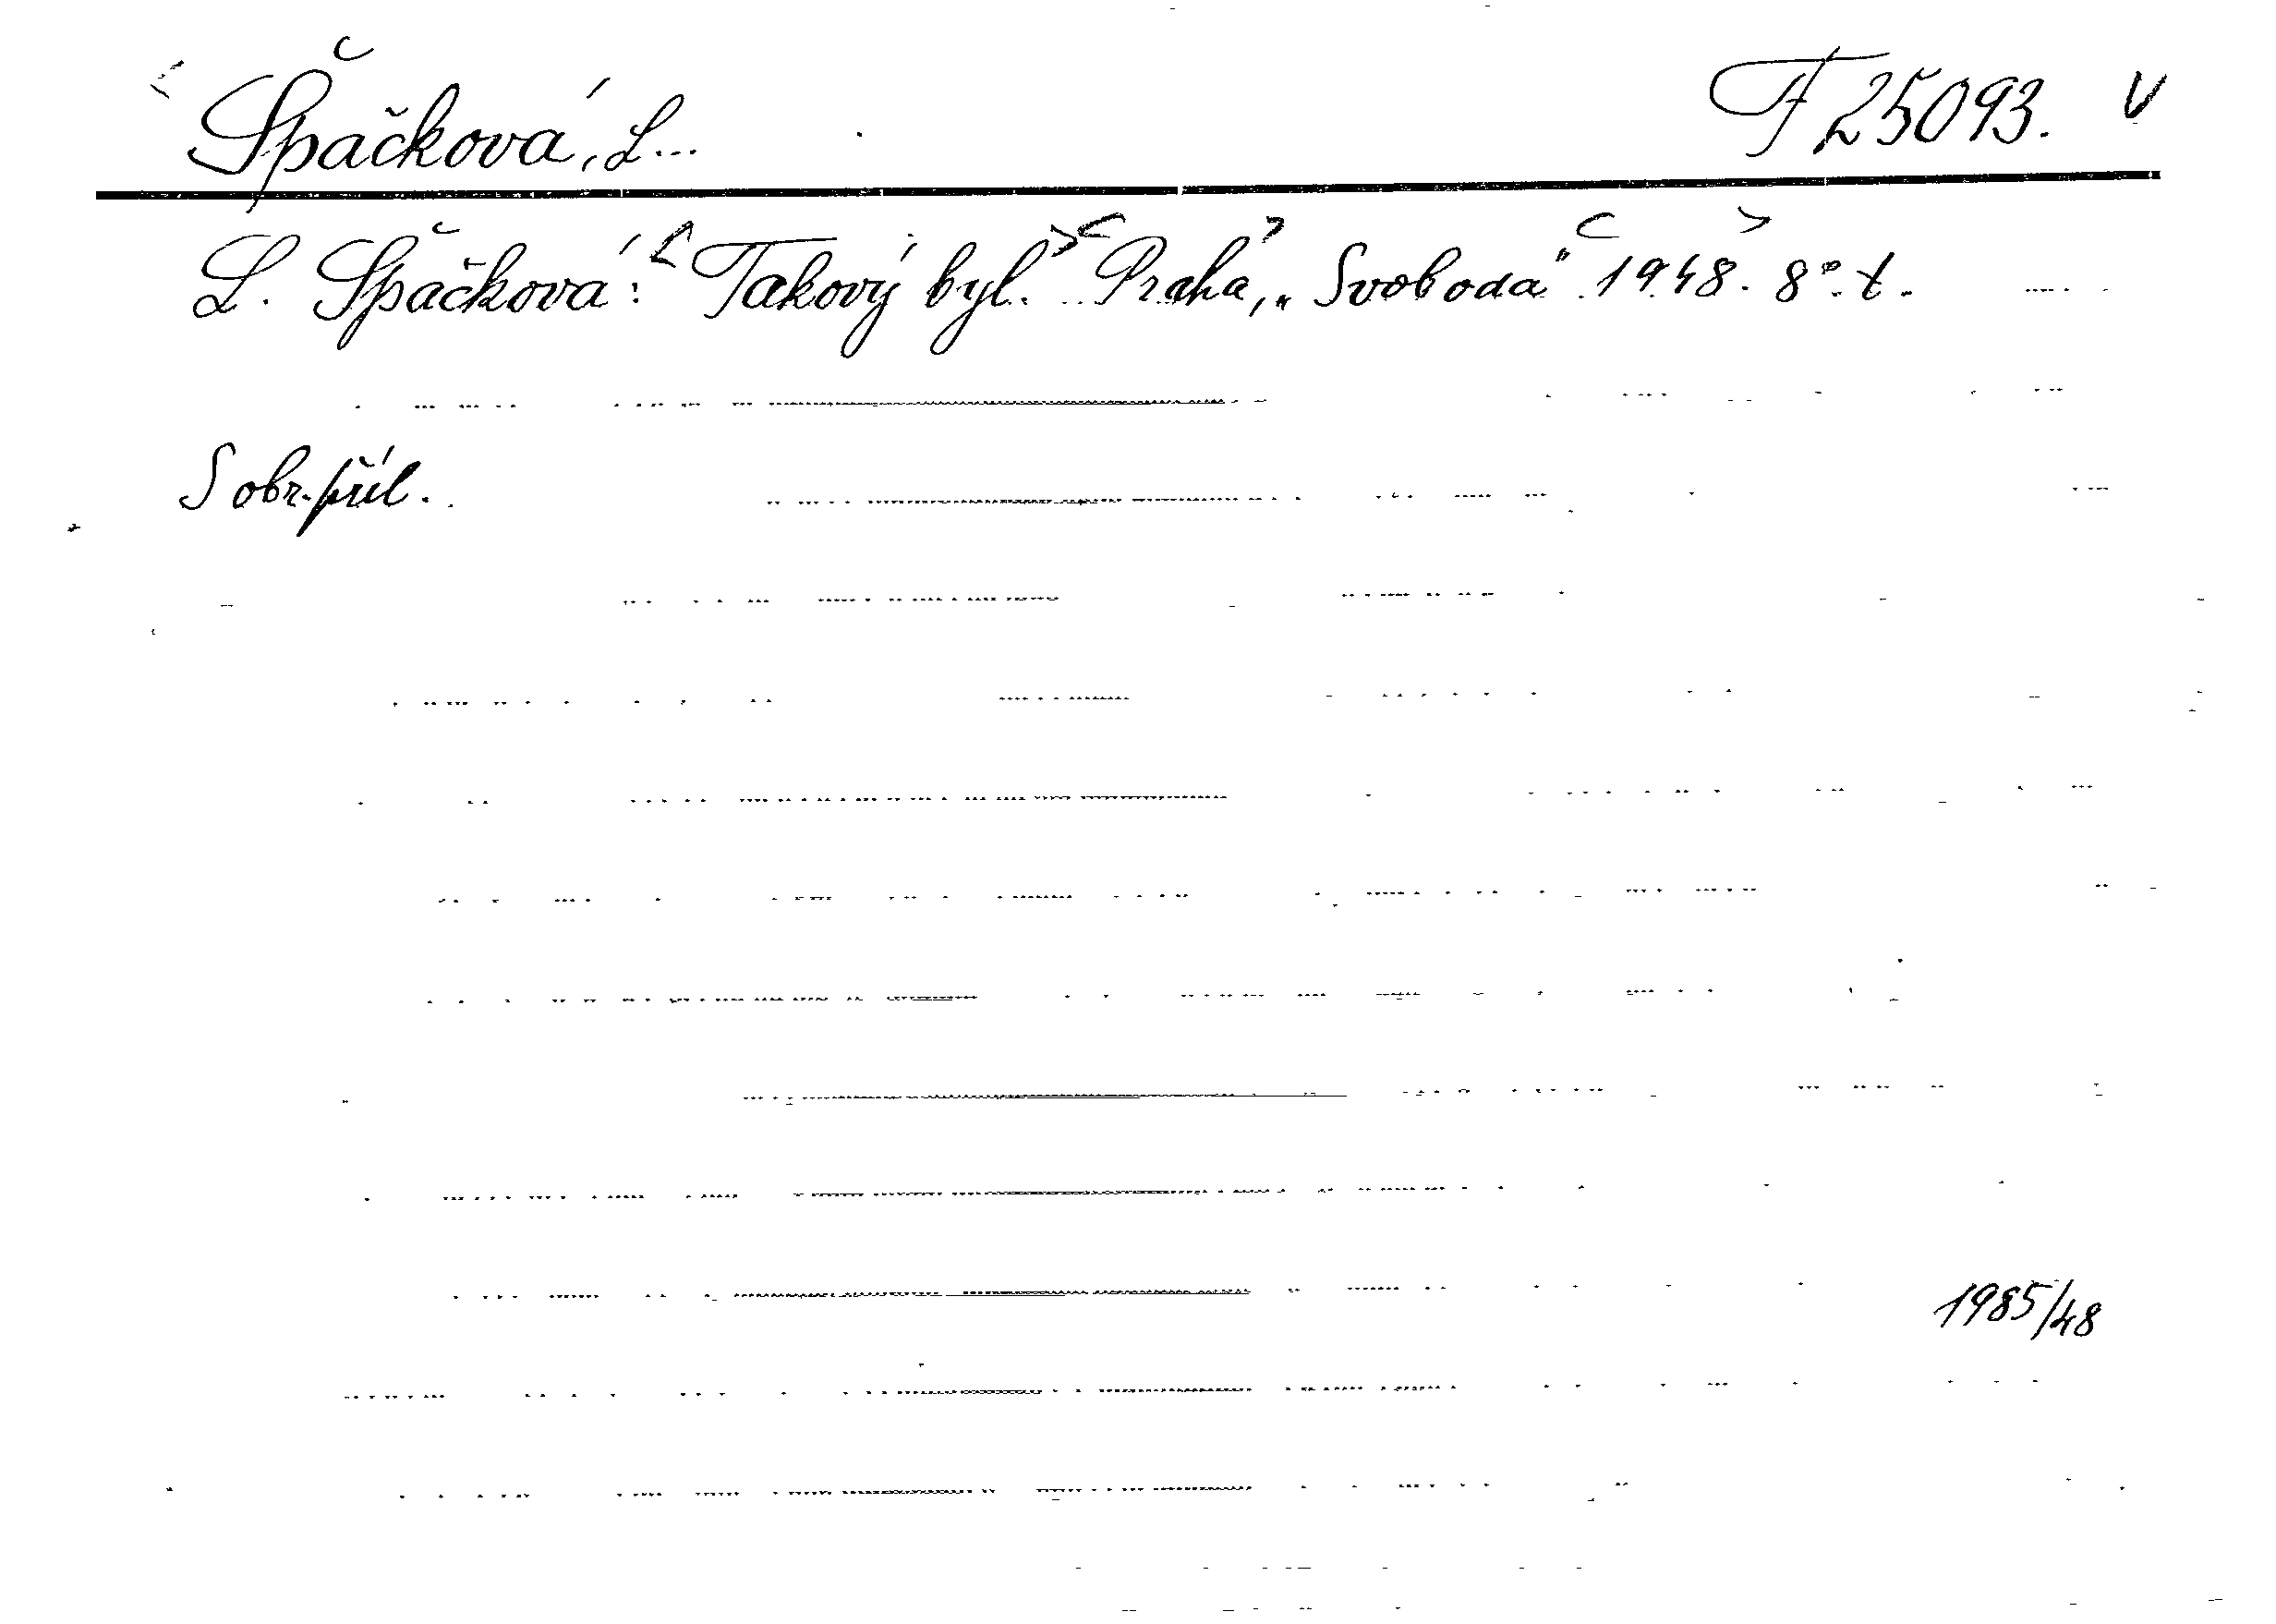 Špačková, L... F 25093. V
L. Špačková: <Takový byl.> <Praha,> „Svoboda" <1948.> 8°. t.
S obr. příl.
1985/48